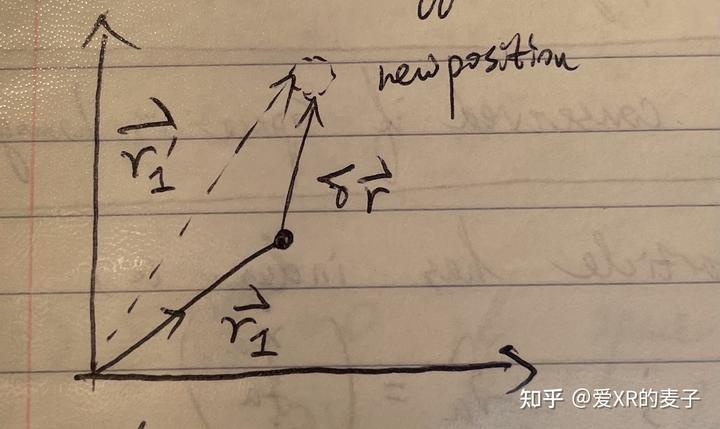 new position
r⃗₁'
δr⃗
r⃗₁
知乎 @爱XR的麦子